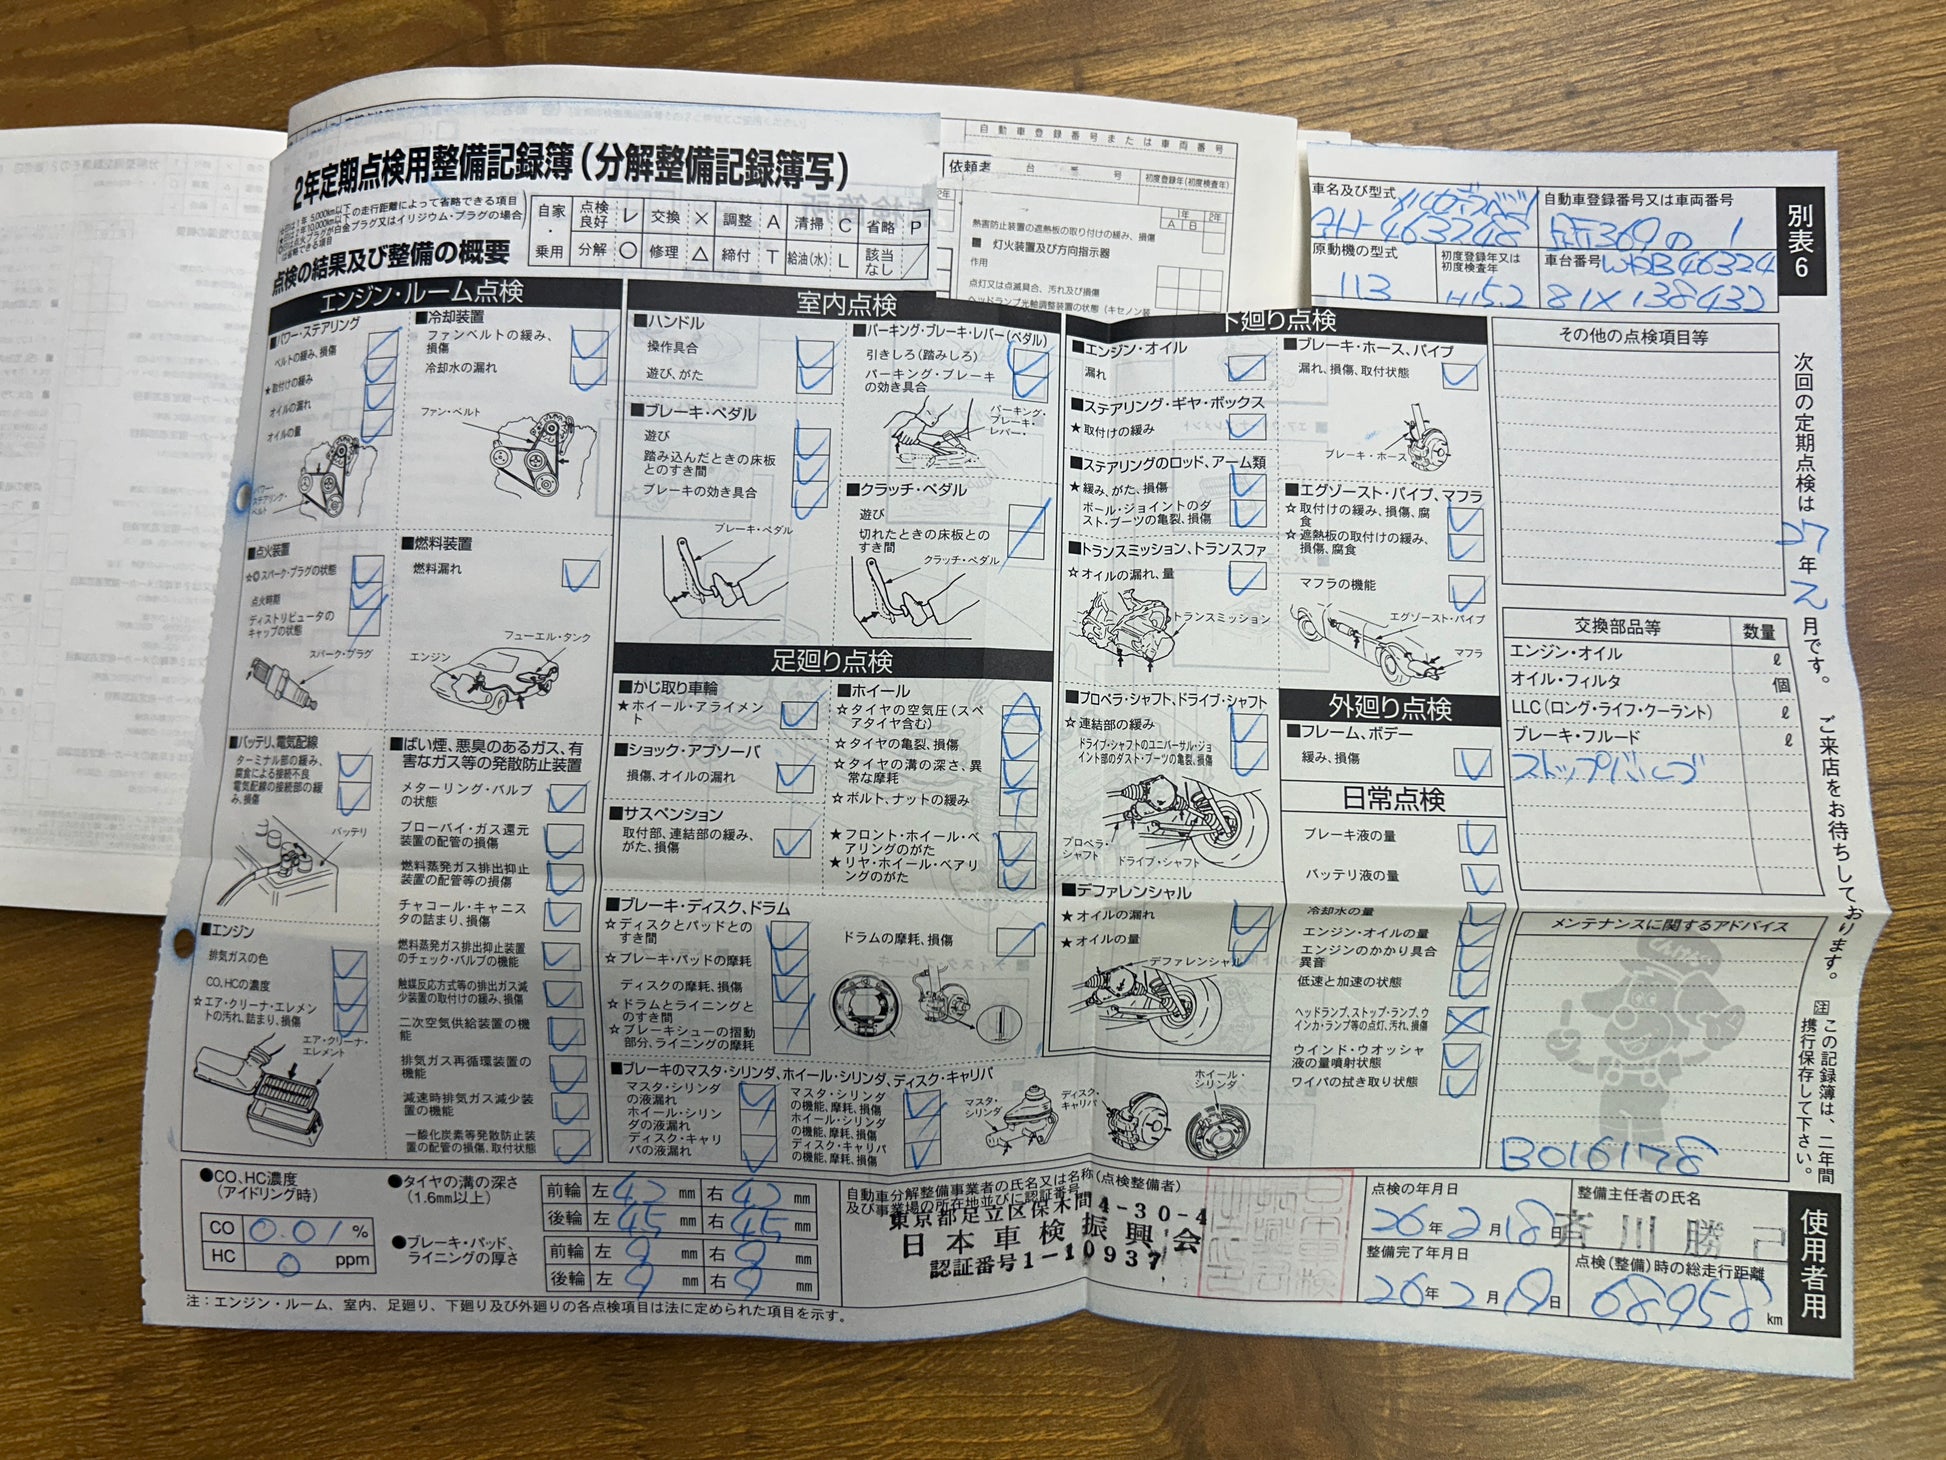 2年定期点検用整備記録簿(分解整備記録簿写)
点検の結果及び整備の概要
自家・乗用
点検良好 レ 交換 × 調整 A 清掃 C 省略 P
分解 ○ 修理 △ 締付 T 給油(水) L 該当なし /
自動車登録番号または車両番号
依頼者
初度登録年(初度検査年)
熱害防止装置の遮熱板の取り付けの緩み、損傷
■ 灯火装置及び方向指示器
作用
点灯又は点滅具合、汚れ及び損傷
車名及び型式
メルセデスベンツ
463248
自動車登録番号又は車両番号
原動機の型式
113
初度登録年又は初度検査年
H15.2
車台番号
WDB46324
81X138432
別表6
エンジン・ルーム点検
■パワー・ステアリング
ベルトの緩み、損傷
★取付けの緩み
オイルの漏れ
オイルの量
パワー・ステアリング・ベルト
■冷却装置
ファンベルトの緩み、損傷
冷却水の漏れ
ファン・ベルト
■点火装置
☆◎スパーク・プラグの状態
点火時期
ディストリビュータのキャップの状態
スパーク・プラグ
■燃料装置
燃料漏れ
フューエル・タンク
エンジン
■バッテリ、電気配線
ターミナル部の緩み、腐食による接続不良
電気配線の接続部の緩み、損傷
バッテリ
■ばい煙、悪臭のあるガス、有害なガス等の発散防止装置
メターリング・バルブの状態
ブローバイ・ガス還元装置の配管の損傷
燃料蒸発ガス排出抑止装置の配管等の損傷
チャコール・キャニスタの詰まり、損傷
燃料蒸発ガス排出抑止装置のチェック・バルブの機能
触媒反応方式等の排出ガス減少装置の取付けの緩み、損傷
二次空気供給装置の機能
排気ガス再循環装置の機能
減速時排気ガス減少装置の機能
一酸化炭素等発散防止装置の配管の損傷、取付状態
■エンジン
排気ガスの色
CO、HCの濃度
☆エア・クリーナ・エレメントの汚れ、詰まり、損傷
エア・クリーナ・エレメント
室内点検
■ハンドル
操作具合
遊び、がた
■ブレーキ・ペダル
遊び
踏み込んだときの床板とのすき間
ブレーキの効き具合
ブレーキ・ペダル
■パーキング・ブレーキ・レバー(ペダル)
引きしろ(踏みしろ)
パーキング・ブレーキの効き具合
パーキング・ブレーキ・レバー・
■クラッチ・ペダル
遊び
切れたときの床板とのすき間
クラッチ・ペダル
足廻り点検
■かじ取り車輪
★ホイール・アライメント
■ショック・アブソーバ
損傷、オイルの漏れ
■サスペンション
取付部、連結部の緩み、がた、損傷
■ホイール
☆タイヤの空気圧(スペアタイヤ含む)
☆タイヤの亀裂、損傷
☆タイヤの溝の深さ、異常な摩耗
☆ボルト、ナットの緩み
★フロント・ホイール・ベアリングのがた
★リヤ・ホイール・ベアリングのがた
■ブレーキ・ディスク、ドラム
☆ディスクとパッドとのすき間
☆ブレーキ・パッドの摩耗
ディスクの摩耗、損傷
☆ドラムとライニングとのすき間
☆ブレーキシューの摺動部分、ライニングの摩耗
ドラムの摩耗、損傷
■ブレーキのマスタ・シリンダ、ホイール・シリンダ、ディスク・キャリパ
マスタ・シリンダの液漏れ
ホイール・シリンダの液漏れ
ディスク・キャリパの液漏れ
マスタ・シリンダの機能、摩耗、損傷
ホイール・シリンダの機能、摩耗、損傷
ディスク・キャリパの機能、摩耗、損傷
マスタ・シリンダ
ディスク・キャリパ
ホイール・シリンダ
下廻り点検
■エンジン・オイル
漏れ
■ステアリング・ギヤ・ボックス
★取付けの緩み
■ステアリングのロッド、アーム類
★緩み、がた、損傷
ボール・ジョイントのダスト・ブーツの亀裂、損傷
■トランスミッション、トランスファ
☆オイルの漏れ、量
トランスミッション
■プロペラ・シャフト、ドライブ・シャフト
☆連結部の緩み
ドライブ・シャフトのユニバーサル・ジョイント部のダスト・ブーツの亀裂、損傷
プロペラ・シャフト
ドライブ・シャフト
■デファレンシャル
★オイルの漏れ
★オイルの量
デファレンシャル
■ブレーキ・ホース、パイプ
漏れ、損傷、取付状態
ブレーキ・ホース
■エグゾースト・パイプ、マフラ
☆取付けの緩み、損傷、腐食
☆遮熱板の取付けの緩み、損傷、腐食
マフラの機能
エグゾースト・パイプ
マフラ
外廻り点検
■フレーム、ボデー
緩み、損傷
日常点検
ブレーキ液の量
バッテリ液の量
冷却水の量
エンジン・オイルの量
エンジンのかかり具合異音
低速と加速の状態
ヘッドランプ、ストップ・ランプ、ウインカ・ランプ等の点灯、汚れ、損傷
ウインド・ウオッシャ液の量噴射状態
ワイパの拭き取り状態
その他の点検項目等
交換部品等 数量
エンジン・オイル ℓ
オイル・フィルタ 個
LLC(ロング・ライフ・クーラント) ℓ
ブレーキ・フルード ℓ
ストップバルブ
メンテナンスに関するアドバイス
B016178
次回の定期点検は27年2月です。ご来店をお待ちしております。
注 この記録簿は、二年間携行保存して下さい。
使用者用
●CO、HC濃度(アイドリング時)
CO 0.01 %
HC 0 ppm
●タイヤの溝の深さ(1.6mm以上)
●ブレーキ・パッド、ライニングの厚さ
前輪 左 mm 右 mm
後輪 左 45 mm 右 45 mm
前輪 左 mm 右 mm
後輪 左 mm 右 mm
自動車分解整備事業者の氏名又は名称(点検整備者)及び事業場の所在地並びに認証番号
東京都足立区保木間4-30-4
日本車検振興会
認証番号1-10937
点検の年月日
26年2月18日
整備完了年月日
26年2月18日
整備主任者の氏名
斉川勝己
点検(整備)時の総走行距離
68,958 km
注：エンジン・ルーム、室内、足廻り、下廻り及び外廻りの各点検項目は法に定められた項目を示す。